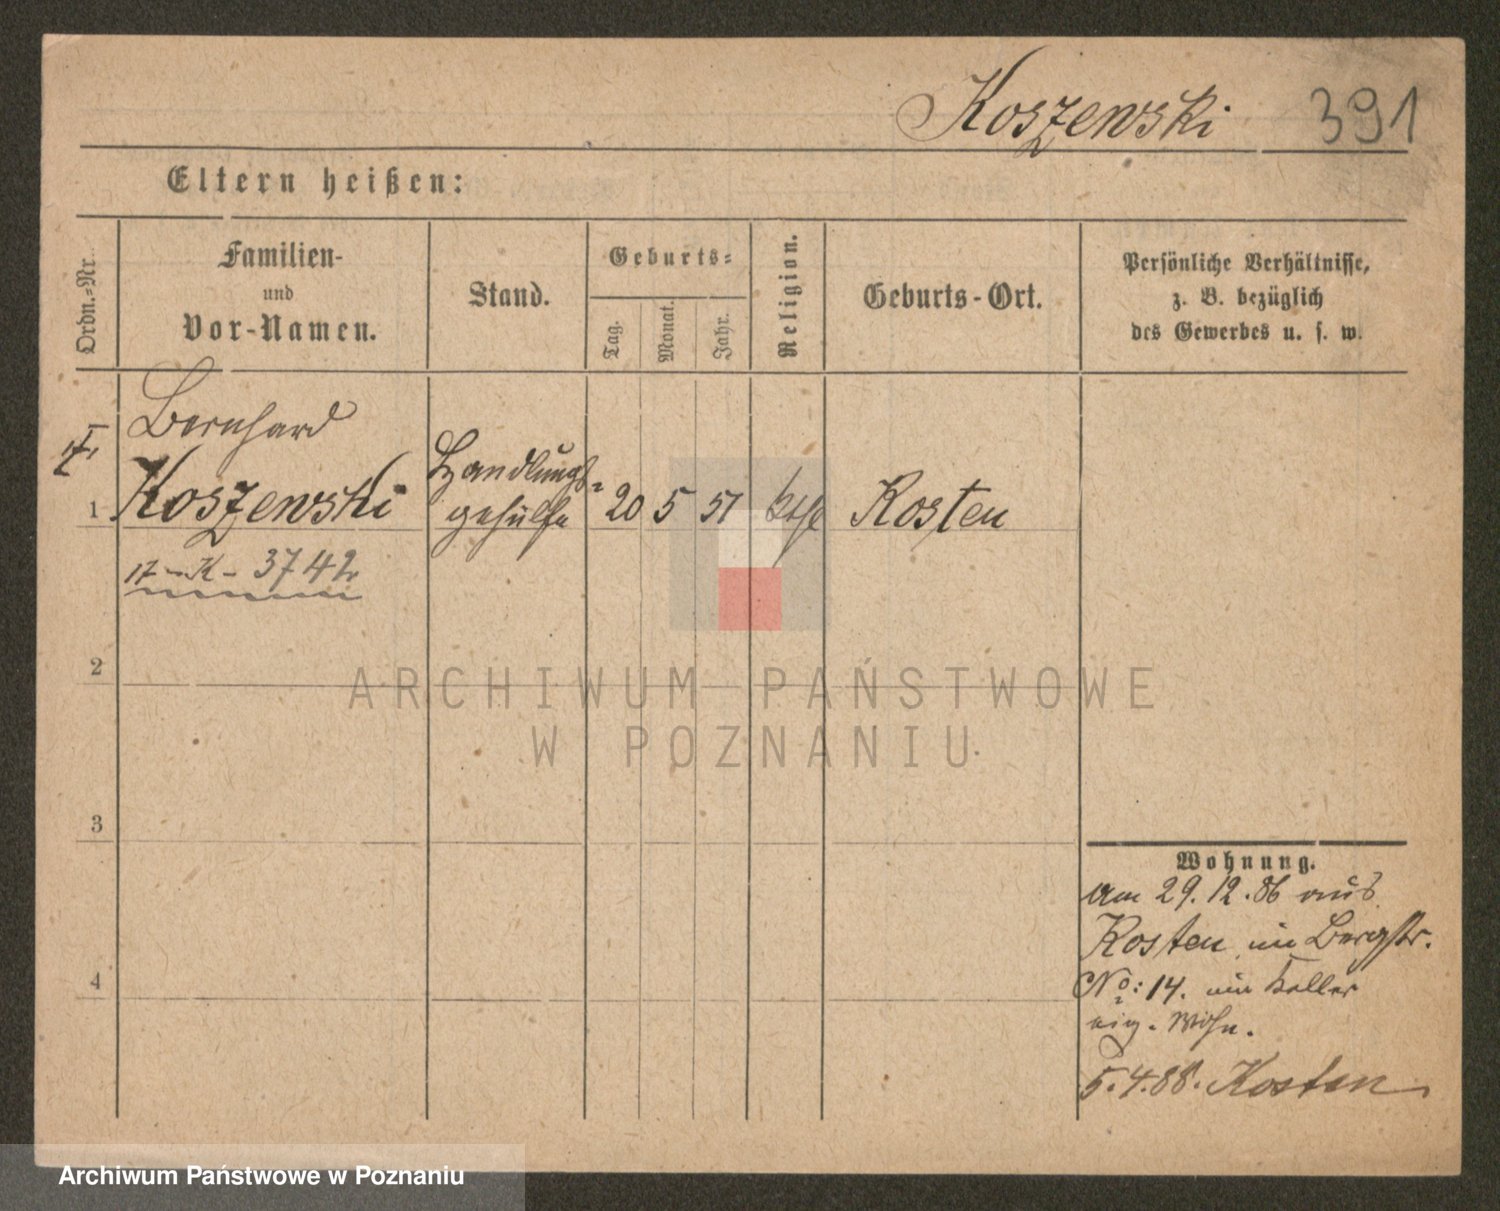 Koszewski 391
Eltern heißen:
Ordn.-Nr.
Familien-
und
Vor-Namen.
Stand.
Geburts-
Tag.
Monat.
Jahr.
Religion.
Geburts-Ort.
Persönliche Verhältnisse,
z. B. bezüglich
des Gewerbes u. s. w.
Bernhard
1 Koszewski
Handlungs-
gehülfe
20 5 51 kth Kosten
17 - K - 3742
2
ARCHIWUM PAŃSTWOWE
W POZNANIU
3
4
Wohnung.
Am 29.12.86 aus
Kosten, in Bergstr.
No: 14. im Keller
eig. Wohn.
5.4.88. Kosten
Archiwum Państwowe w Poznaniu